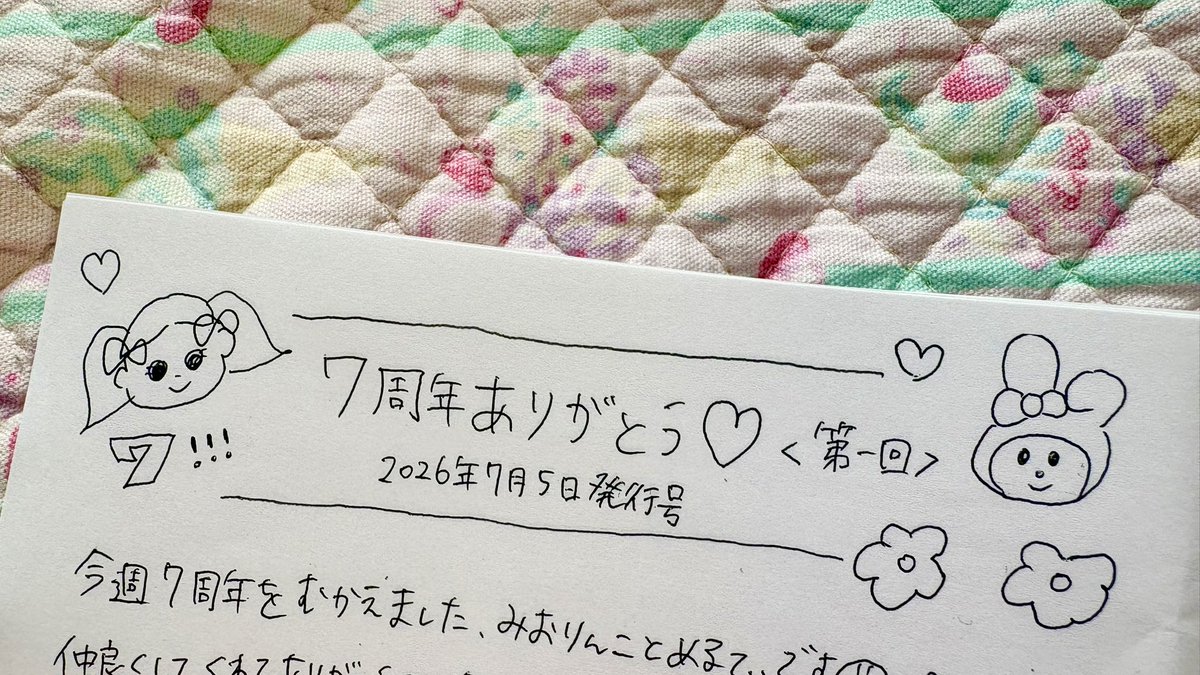 7!!!
7周年ありがとう♡<第一回>
2026年7月5日発行号
今週7周年をむかえました、みおりんことめるてぃです
仲良くしてくれてありが